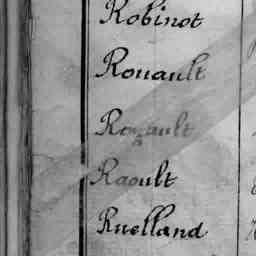 Robinot
Rouault
Raoult
Ruelland